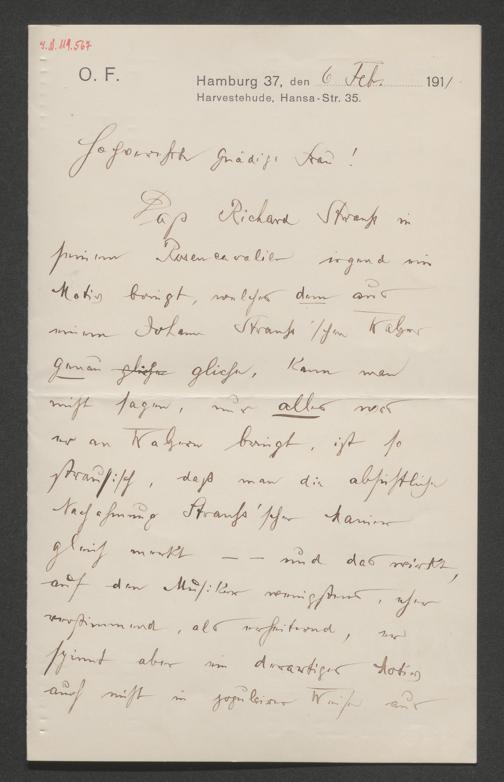 I.N. 119.567
O. F.
Hamburg 37, den 6 Feb. 1911
Harvestehude, Hansa-Str. 35.
Hochverehrte gnädige Frau!
Daß Richard Strauß in
seinem Rosencavalier irgend ein
Motiv bringt, welches dem aus
einem Johann Strauß'schen Walzer
genau gliche gliche, kann man
nicht sagen, nur alles was
er an Walzern bringt, ist so
straußisch, daß man die absichtliche
Nachahmung Strauß'scher Manier
gleich merkt — — und das wirkt,
auf den Musiker wenigstens, eher
verstimmend, als erheiternd, er
spinnt aber ein derartiges Motiv
auch nicht in populärer Weise aus